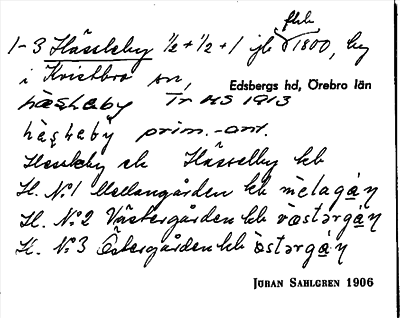 fkb
1-3 Hässleby ½+½+1 jb 1800, by
i Kvistbro sn,
Edsbergs hd, Örebro län
hàs̩ḷəby Tr MS 1913
hàs̩ḷəby prim.-ant.
Hessleby eb Hässelby kb
H. No. 1 Mellangården kb mèlagá̱ṇ
H. No. 2 Västergården kb væ̀stərgá̱ṇ
H. No. 3 Östergården kb ö̀stərgá̱ṇ
JÖRAN SAHLGREN 1906